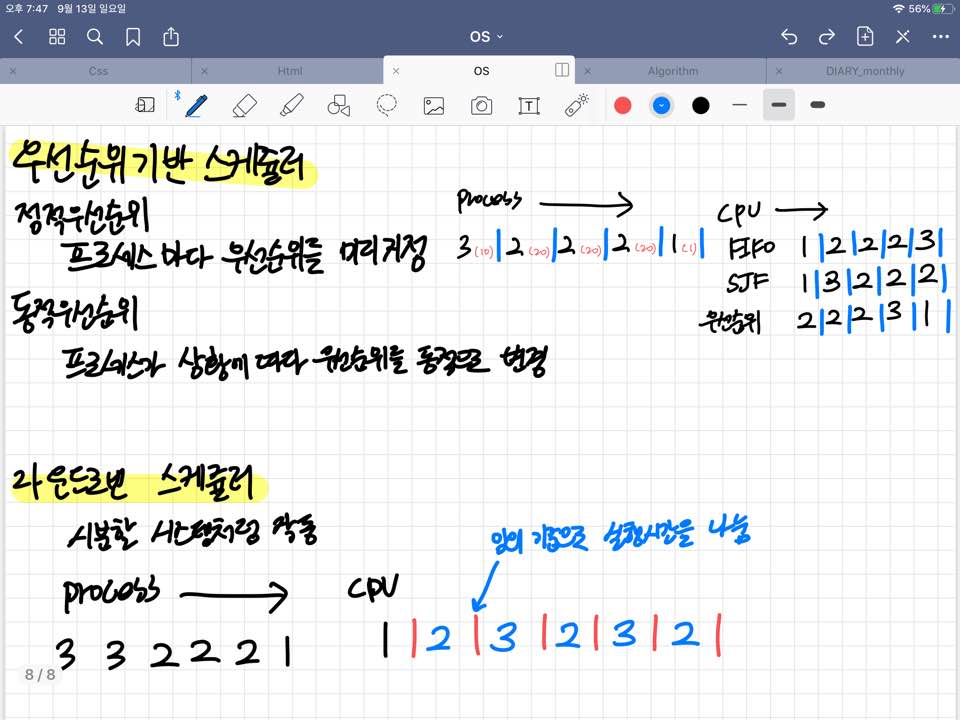 오후 7:47 9월 13일 일요일 56%
OS
Css Html OS Algorithm DIARY_monthly
우선순위기반 스케쥴러
정적우선순위
프로세스마다 우선순위를 미리지정
동적우선순위
프로세스가 상황에 따라 우선순위를 동적으로 변경
process
3(10)|2(20)|2(20)|2(20)|1(1)|
CPU
FIFO 1|2|2|2|3|
SJF 1|3|2|2|2|
우선순위 2|2|2|3|1|
라운드로빈 스케쥴러
시분할 시스템처럼 작동
임의 기준으로 실행시간을 나눔
process
3 3 2 2 2 1
CPU
1|2|3|2|3|2|
8 / 8